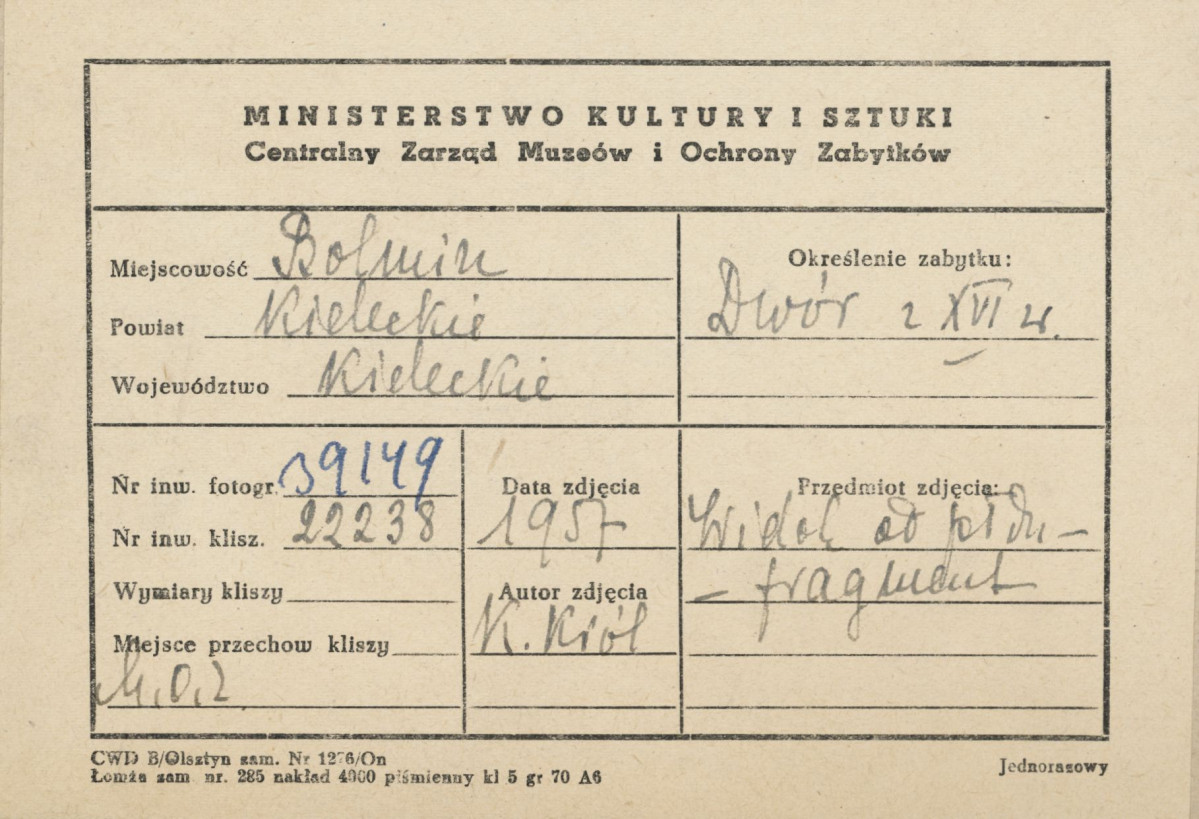 MINISTERSTWO KULTURY I SZTUKI
Centralny Zarząd Muzeów i Ochrony Zabytków
Miejscowość Bolmin
Powiat Kieleckie
Województwo Kieleckie
Określenie zabytku:
Dwór z XVI w.
Nr inw. fotogr. 39149
Nr inw. klisz. 22238
Wymiary kliszy
Miejsce przechow kliszy
M.O.Z.
Data zdjęcia
1957
Autor zdjęcia
K. Kiół
Przedmiot zdjęcia:
Widok od płdn –
– fragment
CWD B/Olsztyn zam. Nr 1276/On
Łomża zam nr. 285 nakład 4000 piśmienny kl 5 gr 70 A6
Jednorazowy